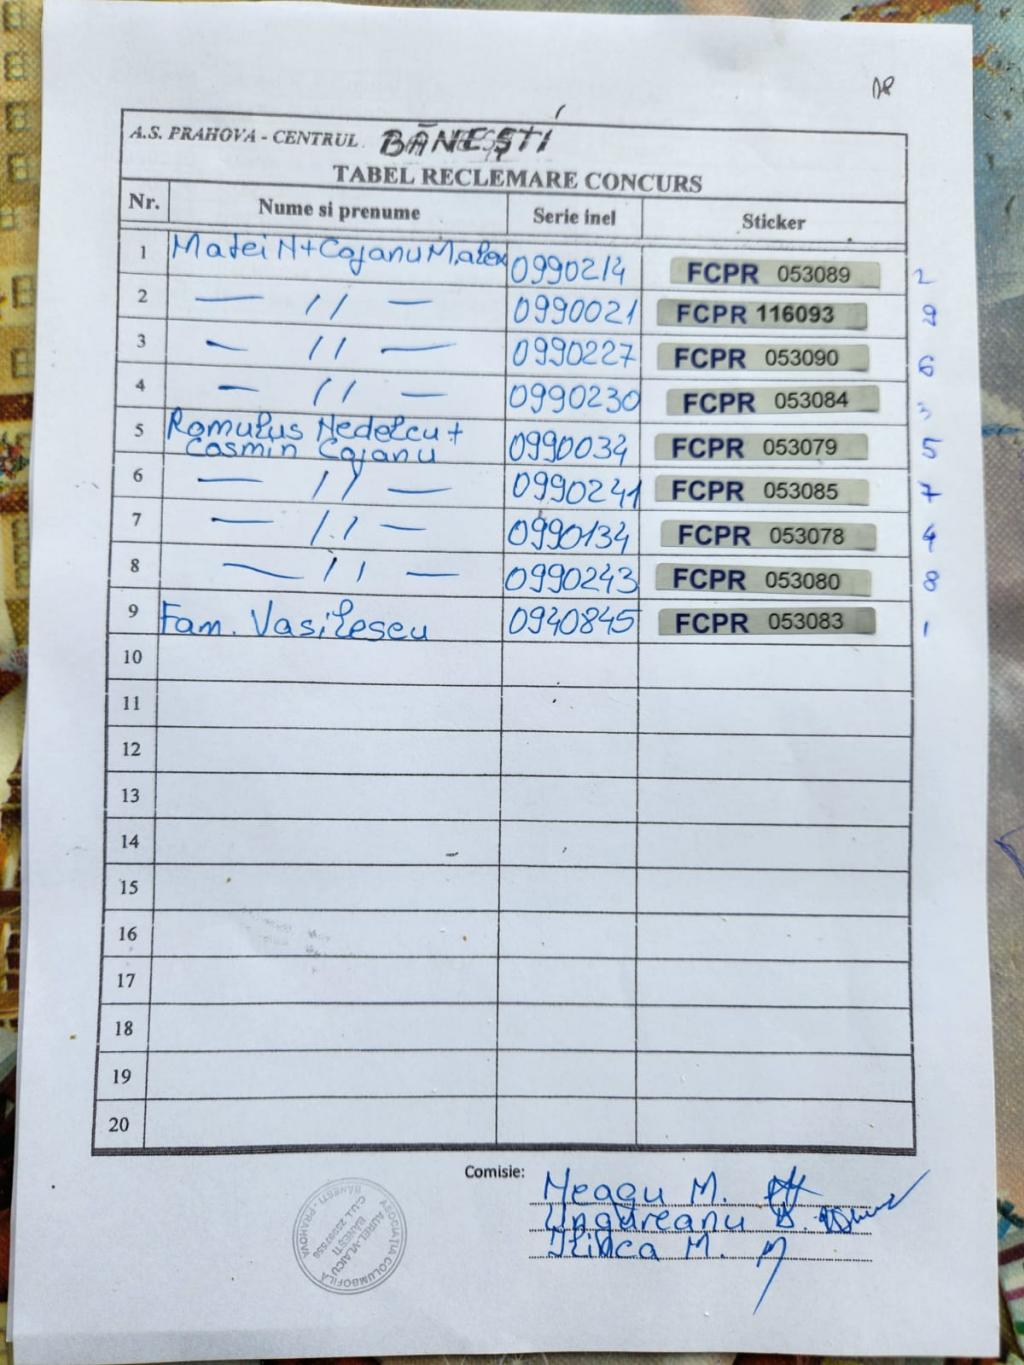 A.S. PRAHOVA - CENTRUL BĂNEȘTI
TABEL RECLEMARE CONCURS
Nr. Nume si prenume Serie inel Sticker
1 Matei N+Cojanu M.alex 0990214 FCPR 053089 2
2 — // — 0990021 FCPR 116093 9
3 — // — 0990227 FCPR 053090 6
4 — // — 0990230 FCPR 053084 3
5 Romulus Nedelcu + Cosmin Cojanu 0990034 FCPR 053079 5
6 — // — 0990241 FCPR 053085 7
7 — // — 0990134 FCPR 053078 4
8 — // — 0990243 FCPR 053080 8
9 Fam. Vasilescu 0940845 FCPR 053083 1
10
11
12
13
14
15
16
17
18
19
20
Comisie:
Neagu M.
Ungureanu D.
Ilinca M.
ASOCIATIA COLUMBOFILA
AUREL VLAICU
BĂNEȘTI
BĂNEȘTI - PRAHOVA